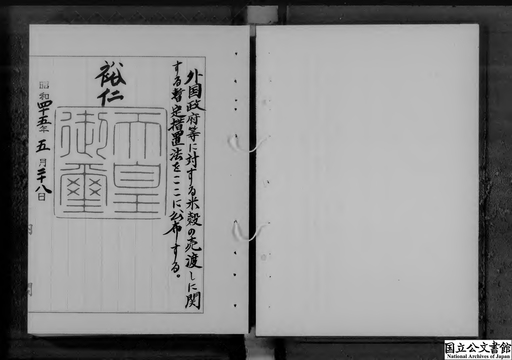 外国政府等に対する米穀の売渡しに関
する暫定措置法をここに公布する。
裕仁
天皇
御璽
昭和四十五年五月二十八日
国立公文書館
National Archives of Japan